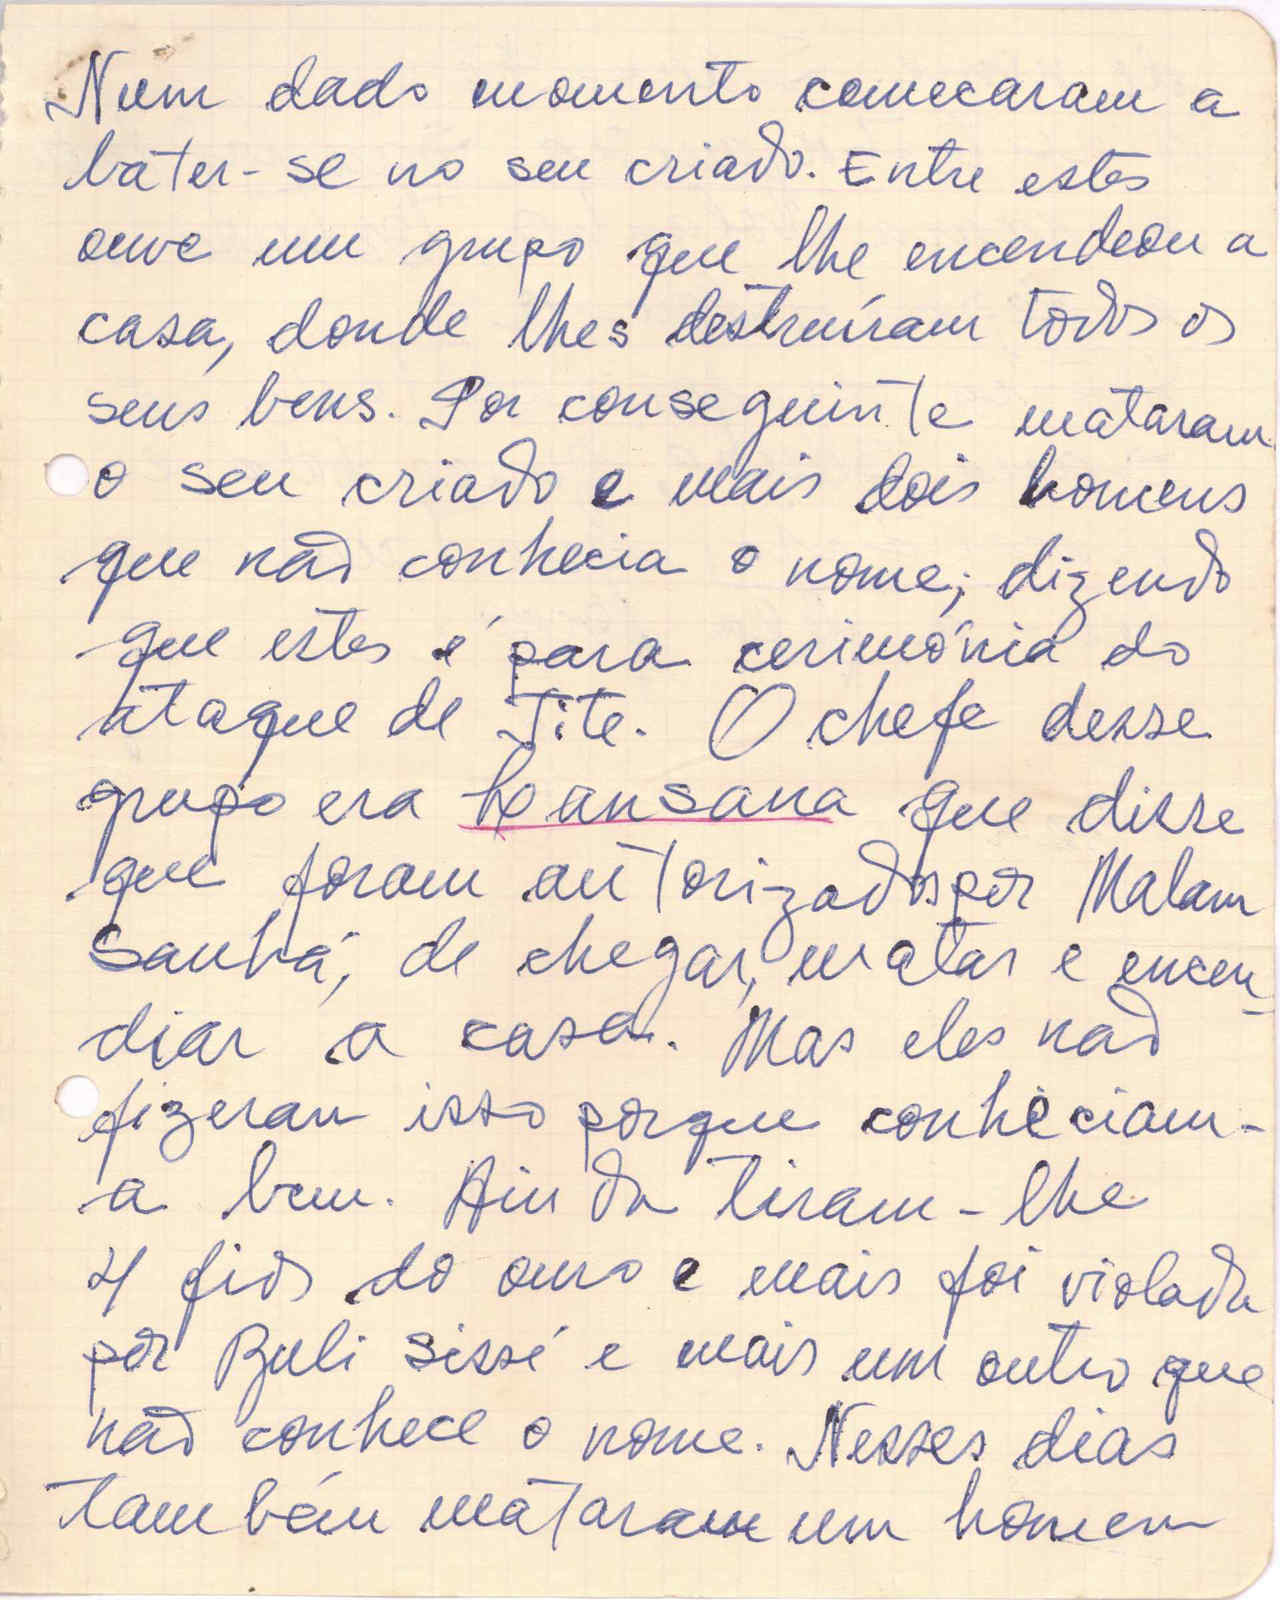 Num dado momento comecaram a
bater-se no seu criado. Entre estes
ouve um grupo que lhe encendeou a
casa, donde lhes destruíram todos os
seus bens. Por conseguinte mataram
o seu criado e mais dois homens
que não conhecia o nome; dizendo
que estes é para cerimónia do
ataque de Tite. O chefe desse
grupo era Lansana que disse
que foram autorizados por Malam
Sanhá, de chegar, matar e encen-
diar a casa. Mas eles não
fizeram isso porque conheciam-
a bem. Ainda tiram-lhe
4 fios do ouro e mais foi violada
por Buli Sissé e mais um outro que
não conhece o nome. Nesses dias
também mataram um homem